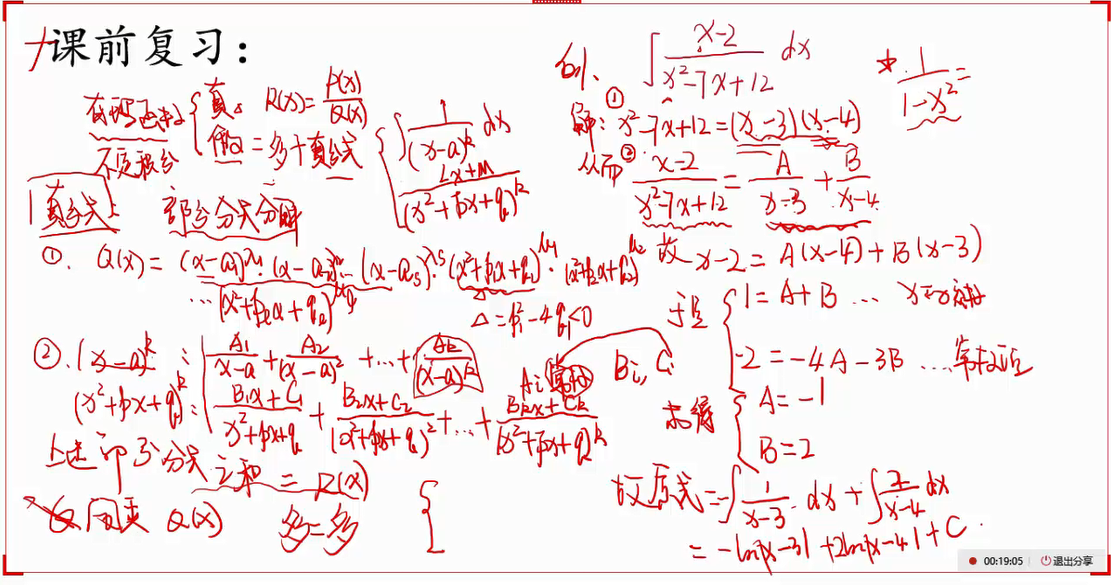 课前复习：
有理函数 { 真。 R(x) = P(x)/Q(x)
不定积分 假 = 多 + 真分式
{ ∫ 1/(x-a)^k dx
Lx+M/(x²+px+q)^k
真分式： 部分分式分解
①. Q(x) = (x-a₁)^λ₁·(x-a₂)^λ₂…(x-a_s)^λs·(x²+p₁x+q₁)^μ₁·(x²+p₂x+q₂)^μ₂
…(x²+p_t x+q_t)^μt
Δ = p₁²-4q₁<0
②. (x-a)^k : A₁/(x-a) + A₂/(x-a)² +…+ A_k/(x-a)^k
Ai 常数 Bi, Ci
(x²+px+q)^k : B₁x+C₁/(x²+px+q) + B₂x+C₂/(x²+px+q)² +…+ B_kx+C_k/(x²+px+q)^k
上述部分分式之和 = R(x)
同乘 Q(x) 多=多 {
例1. ∫ x-2/(x²-7x+12) dx
* 1/(1-x²) =
解：① x²-7x+12=(x-3)(x-4)
从而② x-2/(x²-7x+12) = A/(x-3) + B/(x-4)
故 x-2 = A(x-4)+B(x-3)
于是 { 1=A+B …
-2 = -4A-3B … 常数项
求得 { A=-1
B=2
故原式=-∫ 1/(x-3) dx + ∫ 2/(x-4) dx
= -ln|x-3| + 2ln|x-4| + C.
00:19:05 退出分享